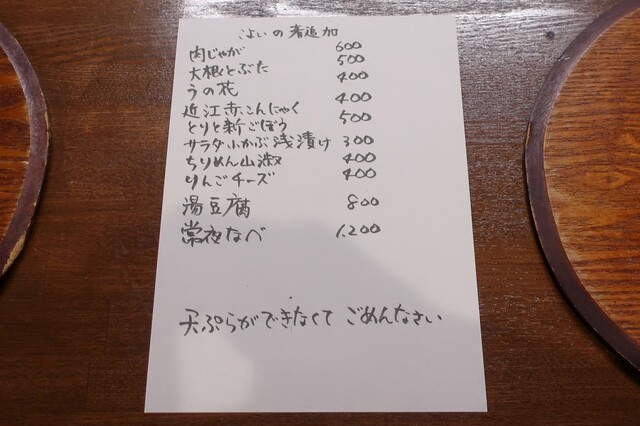 こよいの肴追加
肉じゃが 600
大根とぶた 500
うの花 400
近江赤こんにゃく 400
とりと新ごぼう 500
サラダ小かぶ浅漬け 300
ちりめん山椒 400
りんごチーズ 400
湯豆腐 800
常夜なべ 1,200
天ぷらができなくて ごめんなさい